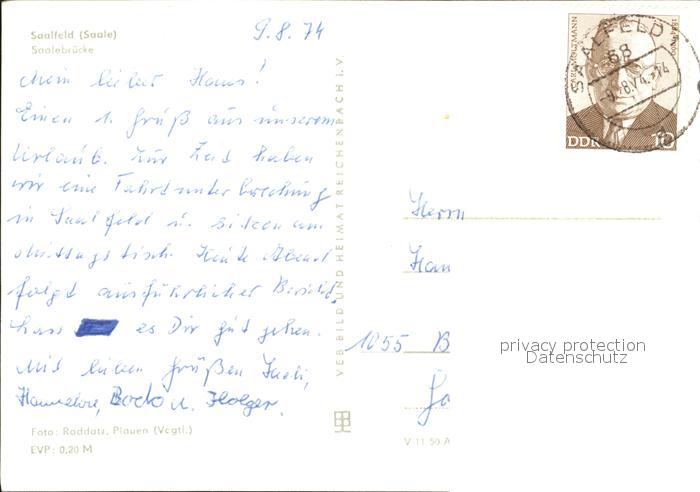 Saalfeld (Saale)
Saalebrücke
9.8.74
Mein lieber Hans!
Einen 1. Gruß aus unserem
Urlaub. Zur Zeit haben
wir eine Fahrtunterbrechung
in Saalfeld u. sitzen am
Mittagstisch. Heute Abend
folgt ausführlicher Bericht.
Lass es Dir gut gehen.
Mit lieben Grüßen
Hannelore, Bodo u. Holger.
Foto: Raddatz, Plauen (Vogtl.)
EVP: 0,20 M
VEB BILD UND HEIMAT REICHENBACH I. V.
SAALFELD
68
-9.-8.74
DDR 10
Herrn
Han
1055 B
V 11 50 A
privacy protection
Datenschutz